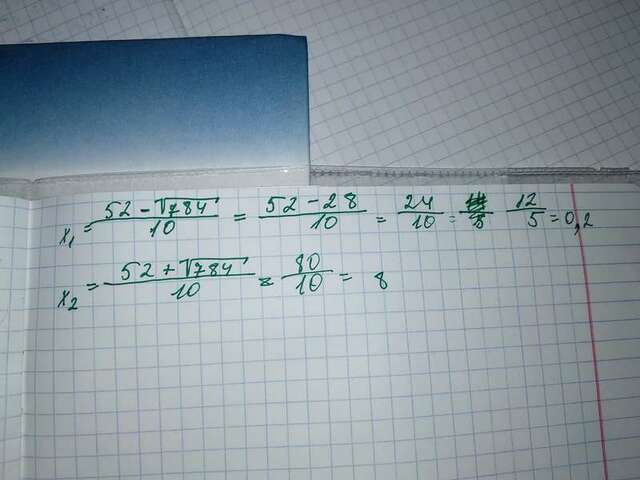 x₁ = (52 - √784)/10 = (52 - 28)/10 = 24/10 = 12/5 = 0,2
x₂ = (52 + √784)/10 = 80/10 = 8